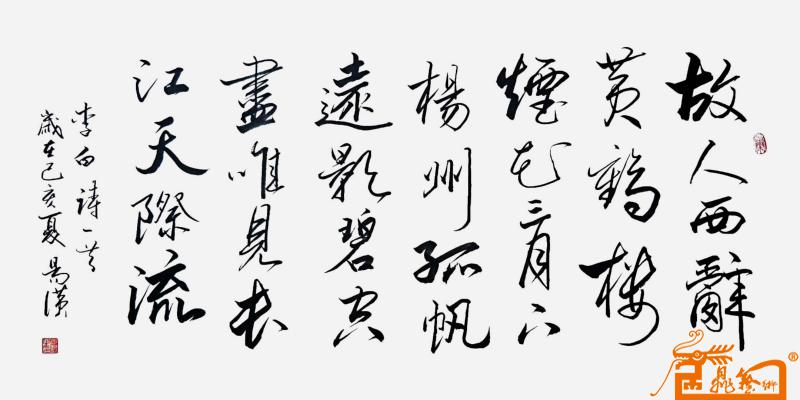 故人西辭
黄鶴楼
煙花三月下
楊州孤帆
遠影碧空
盡唯見長
江天際流
李白詩一首
歲在己亥夏